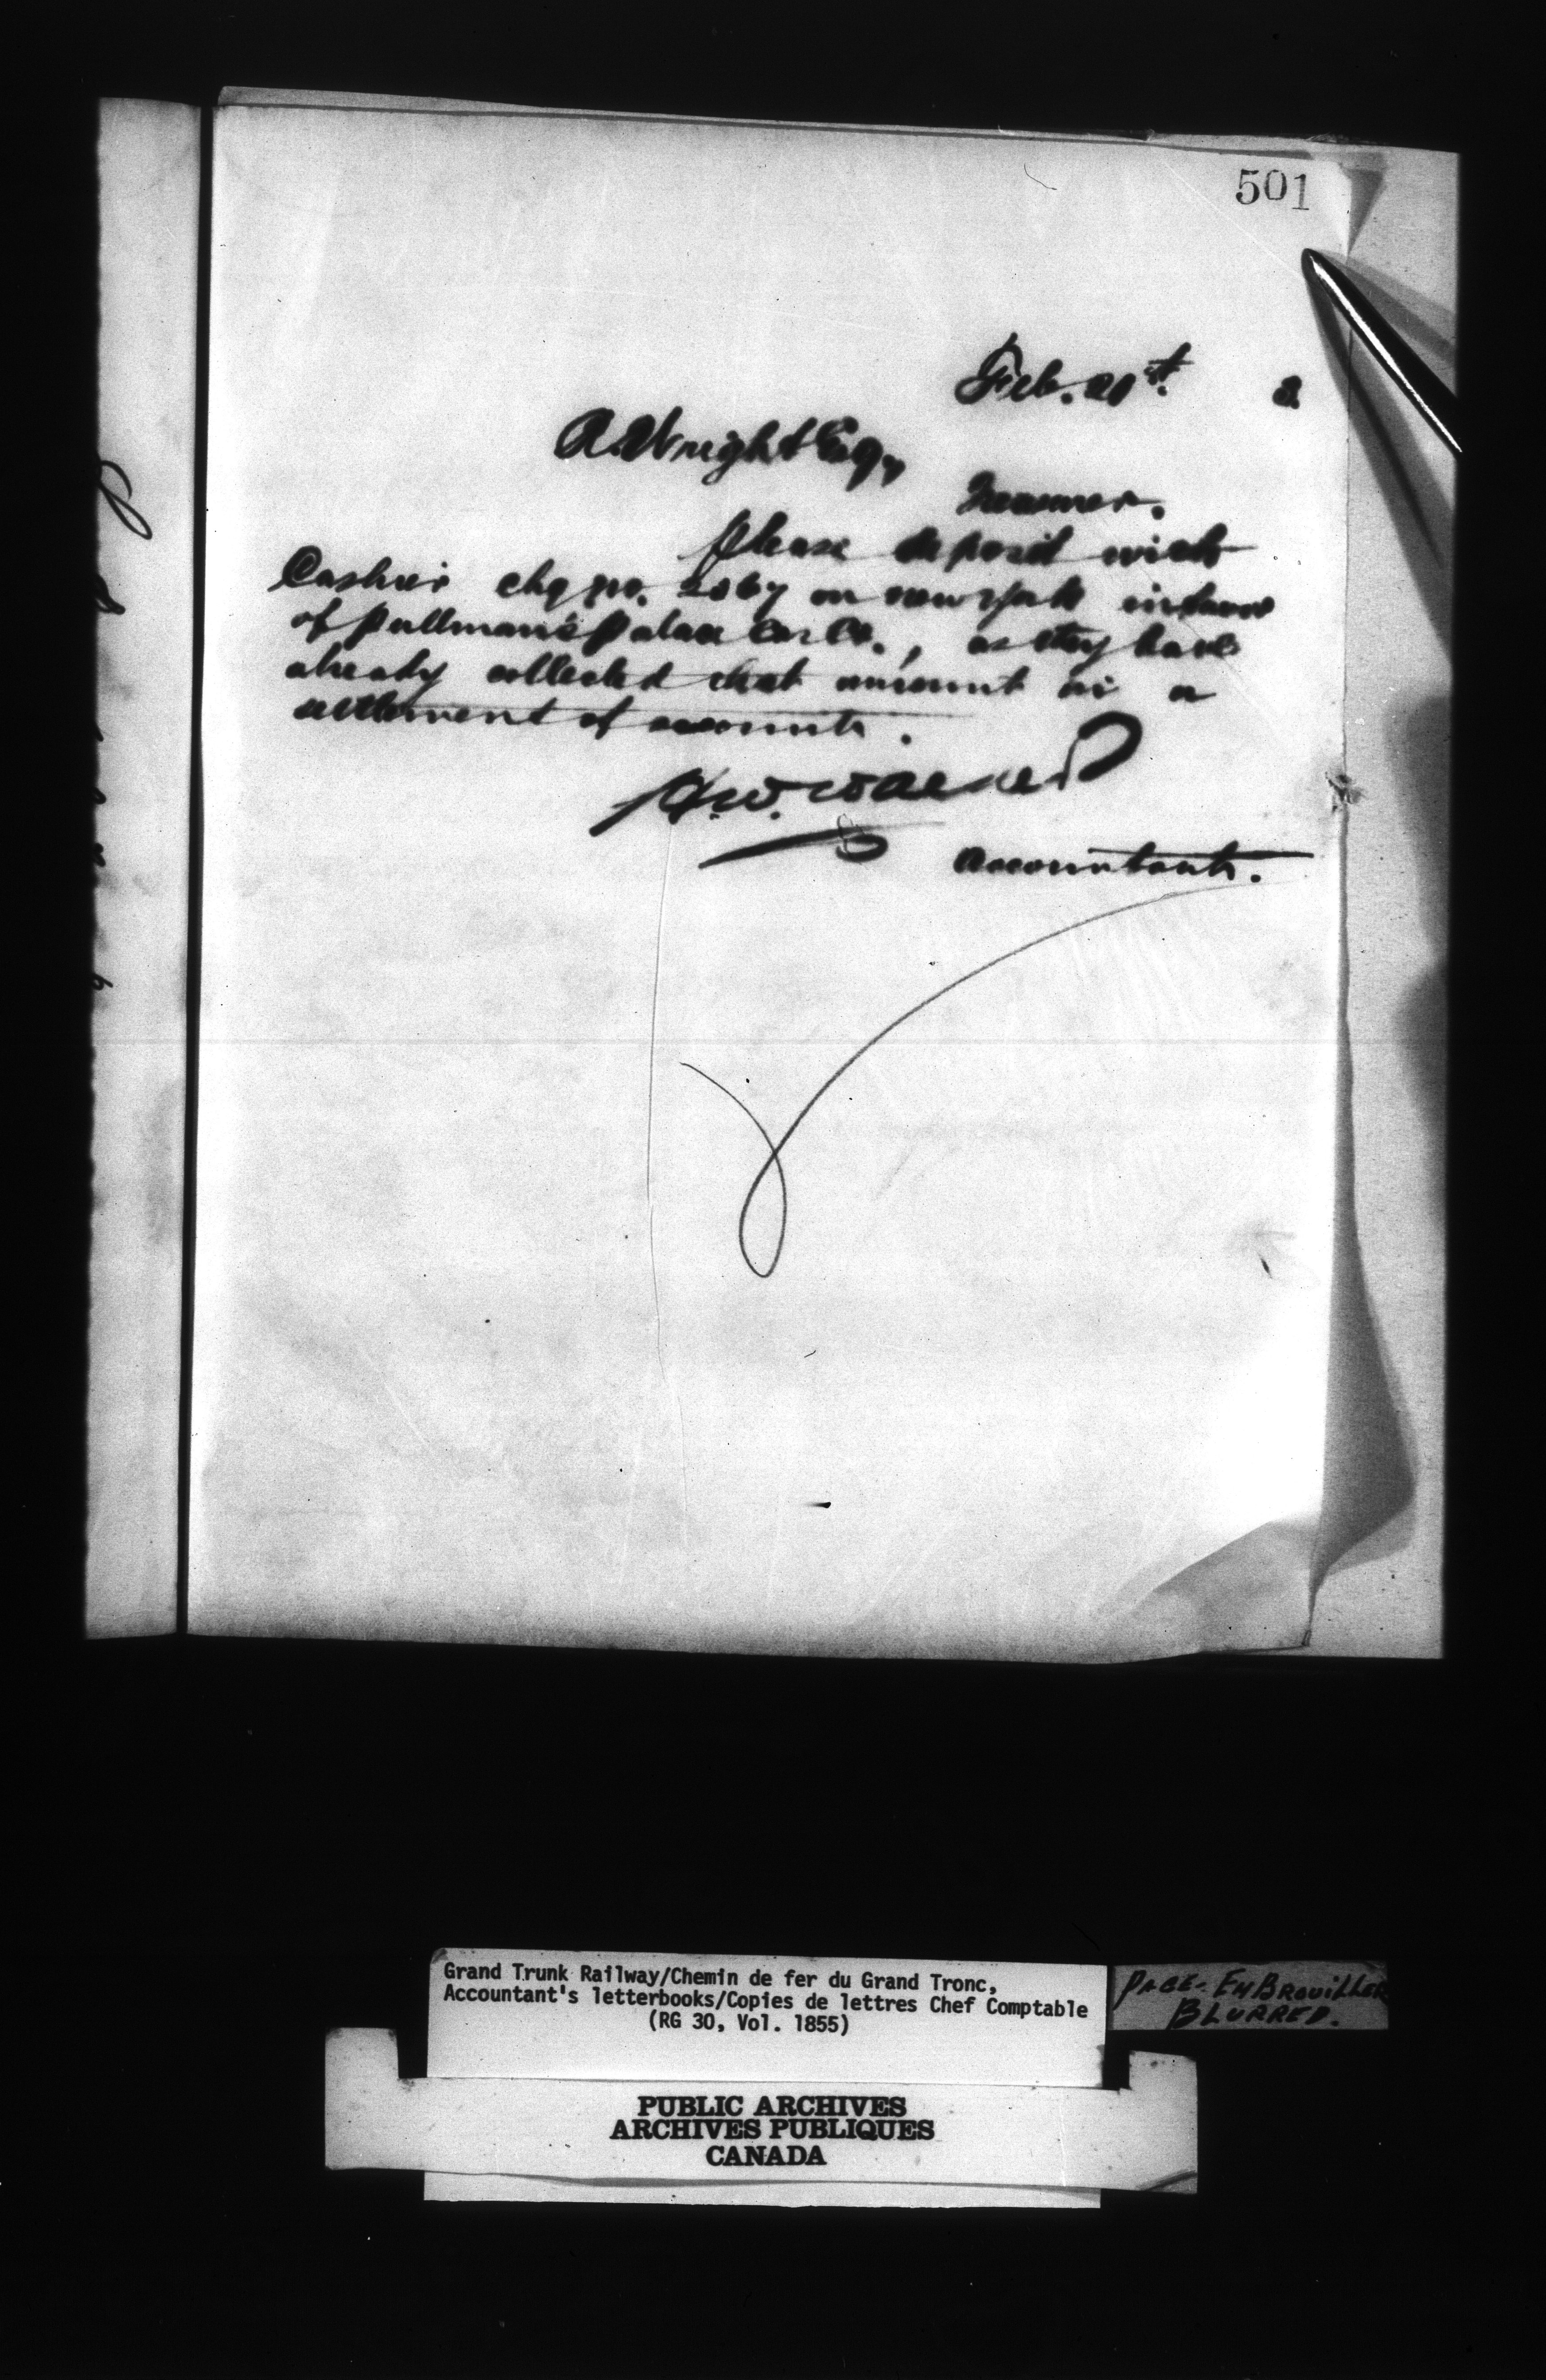 501
Feb. 21st. 2
R. Wright Esq,
Treasurer.
Please deposit with
Cashier chq no. 2067 on New York in favor
of Pullman's Palace Car Co., as they have
already collected that amount in a
settlement of accounts.
H.W. Walker
Accountant.
Grand Trunk Railway/Chemin de fer du Grand Tronc,
Accountant's letterbooks/Copies de lettres Chef Comptable
(RG 30, Vol. 1855)
PAGE- EMBROUILLER
BLURRED.
PUBLIC ARCHIVES
ARCHIVES PUBLIQUES
CANADA